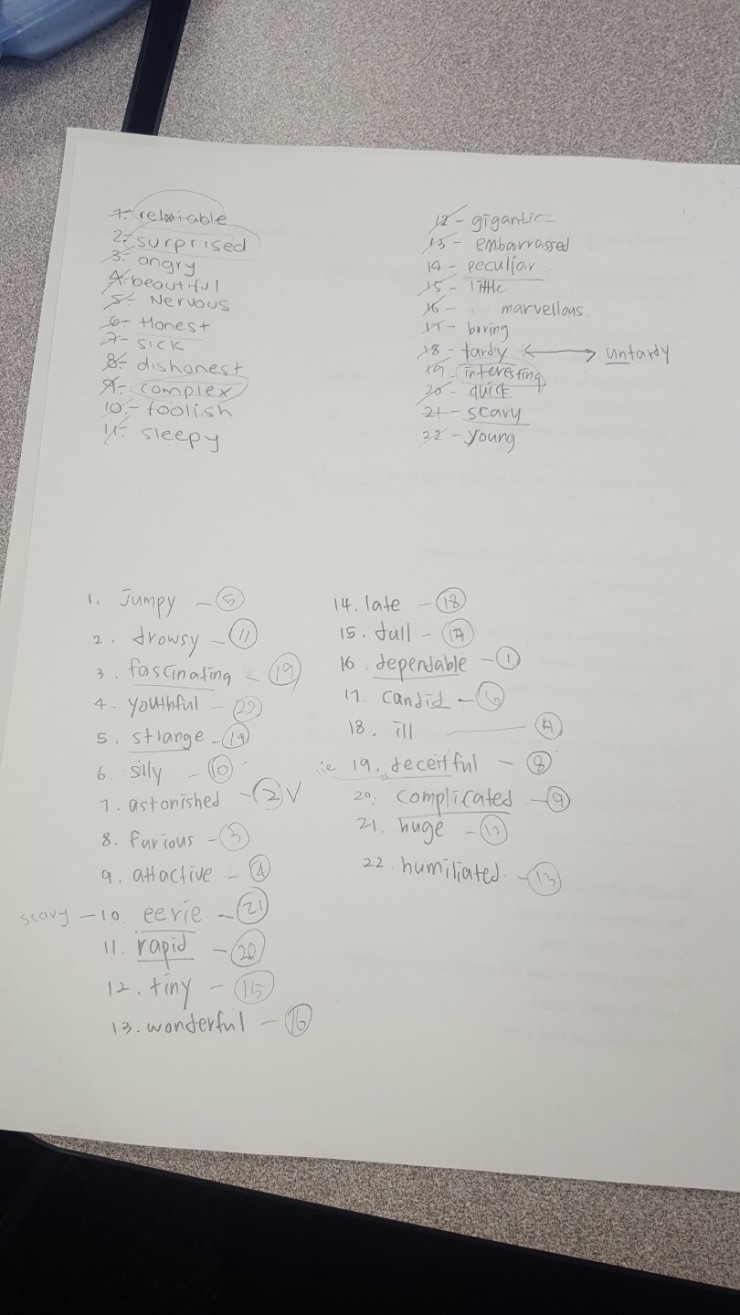 1- reliable
2- surprised
3- angry
4- beautiful
5- Nervous
6- Honest
7- sick
8- dishonest
9- complex
10- foolish
11- sleepy
12- gigantic
13- embarrassed
14- peculiar
15- little
16- marvellous
17- boring
18- tardy ⟷ untardy
19. interesting
20- quick
21- scary
22- young
1. Jumpy - 5
2. drowsy - 11
3. fascinating - 19
4. youthful - 22
5. strange - 14
6. silly - 10
7. astonished - 2 V
8. furious - 3
9. attactive - 4
scary - 10. eerie - 21
11. rapid - 20
12. tiny - 15
13. wonderful - 16
14. late - 18
15. dull - 17
16. dependable - 1
17. candid - 6
18. ill - 7
ie 19. deceitful - 8
20. complicated - 9
21. huge - 12
22. humiliated. - 13